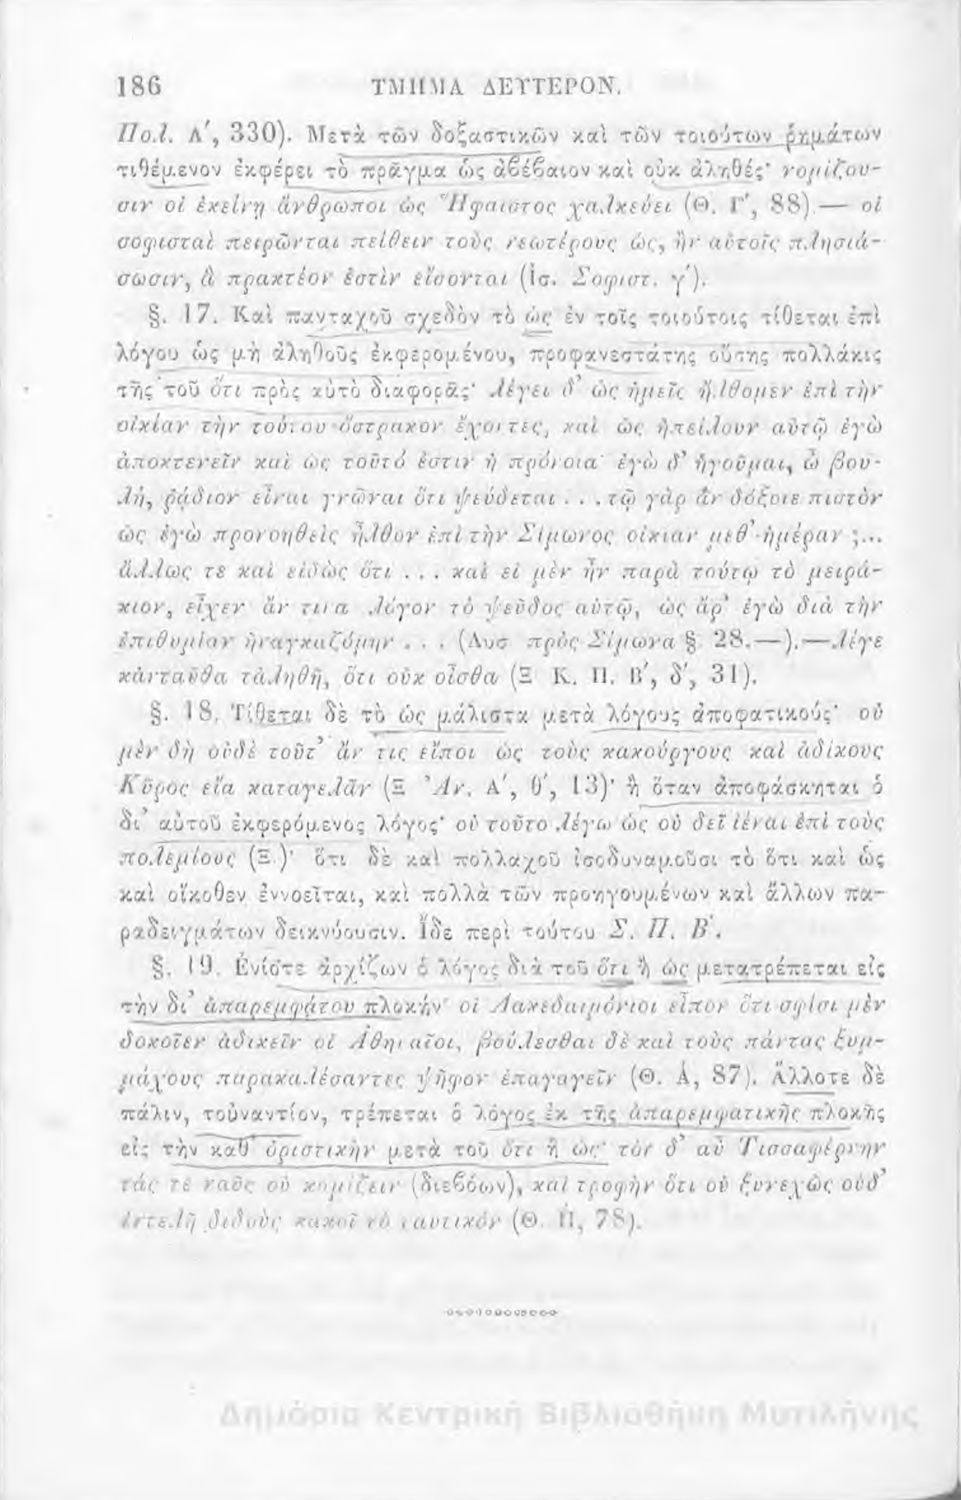 186 ΤΜΗΜΑ ΔΕΥΤΕΡΟΝ.
Πολ. Α΄, 330). Μετὰ τῶν δοξαστικῶν καὶ τῶν τοιούτων ῥημάτων
τιθέμενον ἐκφέρει τὸ πρᾶγμα ὡς ἀβέβαιον καὶ οὐκ ἀληθές· νομίζου-
σιν οἱ ἐκείνῃ ἄνθρωποι ὡς Ἥφαιστος χαλκεύει (Θ. Γ΄, 88) — οἱ
σοφισταὶ πειρῶνται πείθειν τοὺς νεωτέρους ὡς, ἢν αὐτοῖς πλησιά-
σωσιν, ἃ πρακτέον ἐστὶν εἴσονται (Ἰσ. Σοφιστ. γ΄).
§. 17. Καὶ πανταχοῦ σχεδὸν τὸ ὡς ἐν τοῖς τοιούτοις τίθεται ἐπὶ
λόγου ὡς μὴ ἀληθοῦς ἐκφερομένου, προφανεστάτης οὔσης πολλάκις
τῆς τοῦ ὅτι πρὸς αὐτὸ διαφορᾶς· λέγει δ᾽ ὡς ἡμεῖς ἤλθομεν ἐπὶ τὴν
οἰκίαν τὴν τούτου ὄστρακον ἔχοντες, καὶ ὡς ἠπείλουν αὐτῷ ἐγὼ
ἀποκτενεῖν καὶ ὡς τοῦτό ἐστιν ἡ πρόνοια· ἐγὼ δ᾽ ἡγοῦμαι, ὦ βου-
λή, ῥᾴδιον εἶναι γνῶναι ὅτι ψεύδεται . . . τῷ γὰρ ἂν δόξειε πιστὸν
ὡς ἐγὼ προνοηθεὶς ἦλθον ἐπὶ τὴν Σίμωνος οἰκίαν μεθ᾽ ἡμέραν ;...
ἄλλως τε καὶ εἰδὼς ὅτι . . . καὶ εἰ μὲν ἦν παρὰ τούτῳ τὸ μειρά-
κιον, εἶχεν ἄν τινα λόγον τὸ ψεῦδος αὐτῷ, ὡς ἄρ᾽ ἐγὼ διὰ τὴν
ἐπιθυμίαν ἠναγκαζόμην . . . (Λυσ πρὸς Σίμωνα § 28.—).—λέγε
κἀνταῦθα τἀληθῆ, ὅτι οὐκ οἶσθα (Ξ Κ. Π. Β΄, δ΄, 31).
§. 18. Τίθεται δὲ τὸ ὡς μάλιστα μετὰ λόγους ἀποφατικούς· οὐ
μὲν δὴ οὐδὲ τοῦτ᾽ ἄν τις εἴποι ὡς τοὺς κακούργους καὶ ἀδίκους
Κῦρος εἴα καταγελᾶν (Ξ ᾽Αν. Α΄, θ΄, 13)· ἢ ὅταν ἀποφάσκηται ὁ
δι᾽ αὐτοῦ ἐκφερόμενος λόγος· οὐ τοῦτο λέγω ὡς οὐ δεῖ ἰέναι ἐπὶ τοὺς
πολεμίους (Ξ.)· ὅτι δὲ καὶ πολλαχοῦ ἰσοδυναμοῦσι τὸ ὅτι καὶ ὡς
καὶ οἴκοθεν ἐννοεῖται, καὶ πολλὰ τῶν προηγουμένων καὶ ἄλλων πα-
ραδειγμάτων δεικνύουσιν. Ἴδε περὶ τούτου Σ. Π. Β΄.
§. 19. Ἐνίοτε ἀρχίζων ὁ λόγος διὰ τοῦ ὅτι ἢ ὡς μετατρέπεται εἰς
τὴν δι᾽ ἀπαρεμφάτου πλοκήν· οἱ Λακεδαιμόνιοι εἶπον ὅτι σφίσι μὲν
δοκοῖεν ἀδικεῖν οἱ Ἀθηναῖοι, βούλεσθαι δὲ καὶ τοὺς πάντας ξυμ-
μάχους παρακαλέσαντες ψῆφον ἐπαγαγεῖν (Θ. Ἀ, 87). Ἄλλοτε δὲ
πάλιν, τοὐναντίον, τρέπεται ὁ λόγος ἐκ τῆς ἀπαρεμφατικῆς πλοκῆς
εἰς τὴν καθ᾽ ὁριστικὴν μετὰ τοῦ ὅτι ἢ ὡς· τὸν δ᾽ αὖ Τισσαφέρνην
τάς τε ναῦς οὐ κομίζειν (διεβόων), καὶ τροφὴν ὅτι οὐ ξυνεχῶς οὐδ᾽
ἐντελῆ διδοὺς κακοῖ τὸ ναυτικόν (Θ. Η, 78).
Δημόσια Κεντρική Βιβλιοθήκη Μυτιλήνης